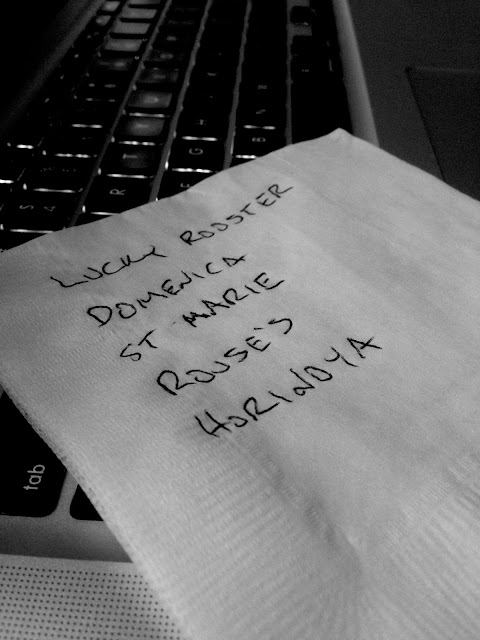 LUCKY ROOSTER
DOMENICA
ST MARIE
ROUSE'S
HORINOYA
tab